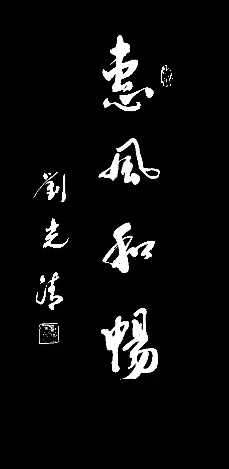 惠風和暢
劉光清